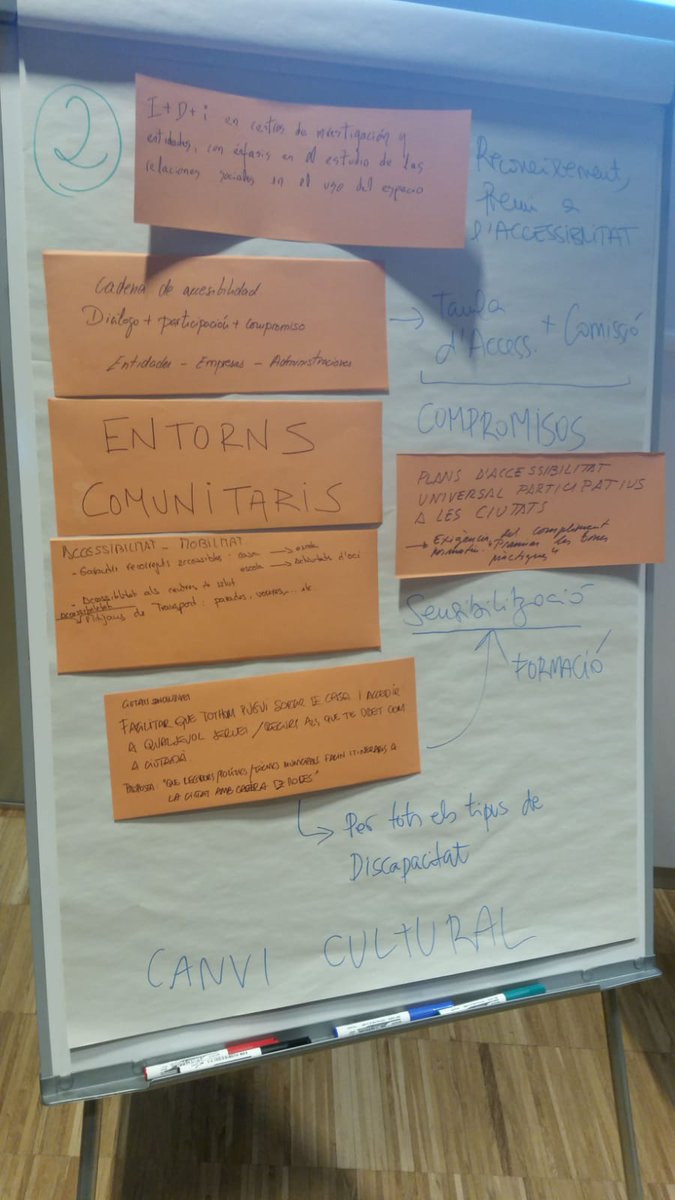 2
I+D+i en centros de investigación y
entidades, con énfasis en el estudio de las
relaciones sociales en el uso del espacio
Reconeixement,
Premi a
l'ACCESSIBILITAT
Cadena de accesibilidad
Diálogo + participación + compromiso
Entidades - Empresas - Administraciones
→ Taula
d'Access. + Comissió
COMPROMISOS
ENTORNS
COMUNITARIS
PLANS D'ACCESSIBILITAT
UNIVERSAL PARTICIPATIUS
A LES CIUTATS
→ Exigència del compliment
normatiu. "Premiar les bones
pràctiques"
ACCESSIBILITAT - MOBILITAT
- Garantir recorreguts accessibles: casa → escola
escola → activitats d'oci
- Accessibilitat als centres de salut
Accessibilitat
Mitjans de Transport: parades, voreres,... etc.
Sensibilització
FORMACIÓ
CIUTATS
FACILITAR QUE TOTHOM PUGUI SORTIR DE CASA I ACCEDIR
A QUALSEVOL SERVEI / RECURS ALS QUE TE DRET COM
A CIUTADÀ.
PROPOSTA: "QUE REGIDORS/POLÍTICS/TÈCNICS MUNICIPALS FACIN ITINERARIS A
LA CIUTAT AMB CADIRA DE RODES"
→ Per tots els tipus de
Discapacitat
CANVI CULTURAL